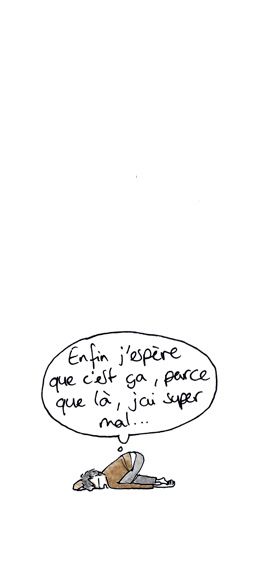 Enfin j'espère
que c'est ça, parce
que là, j'ai super
mal...